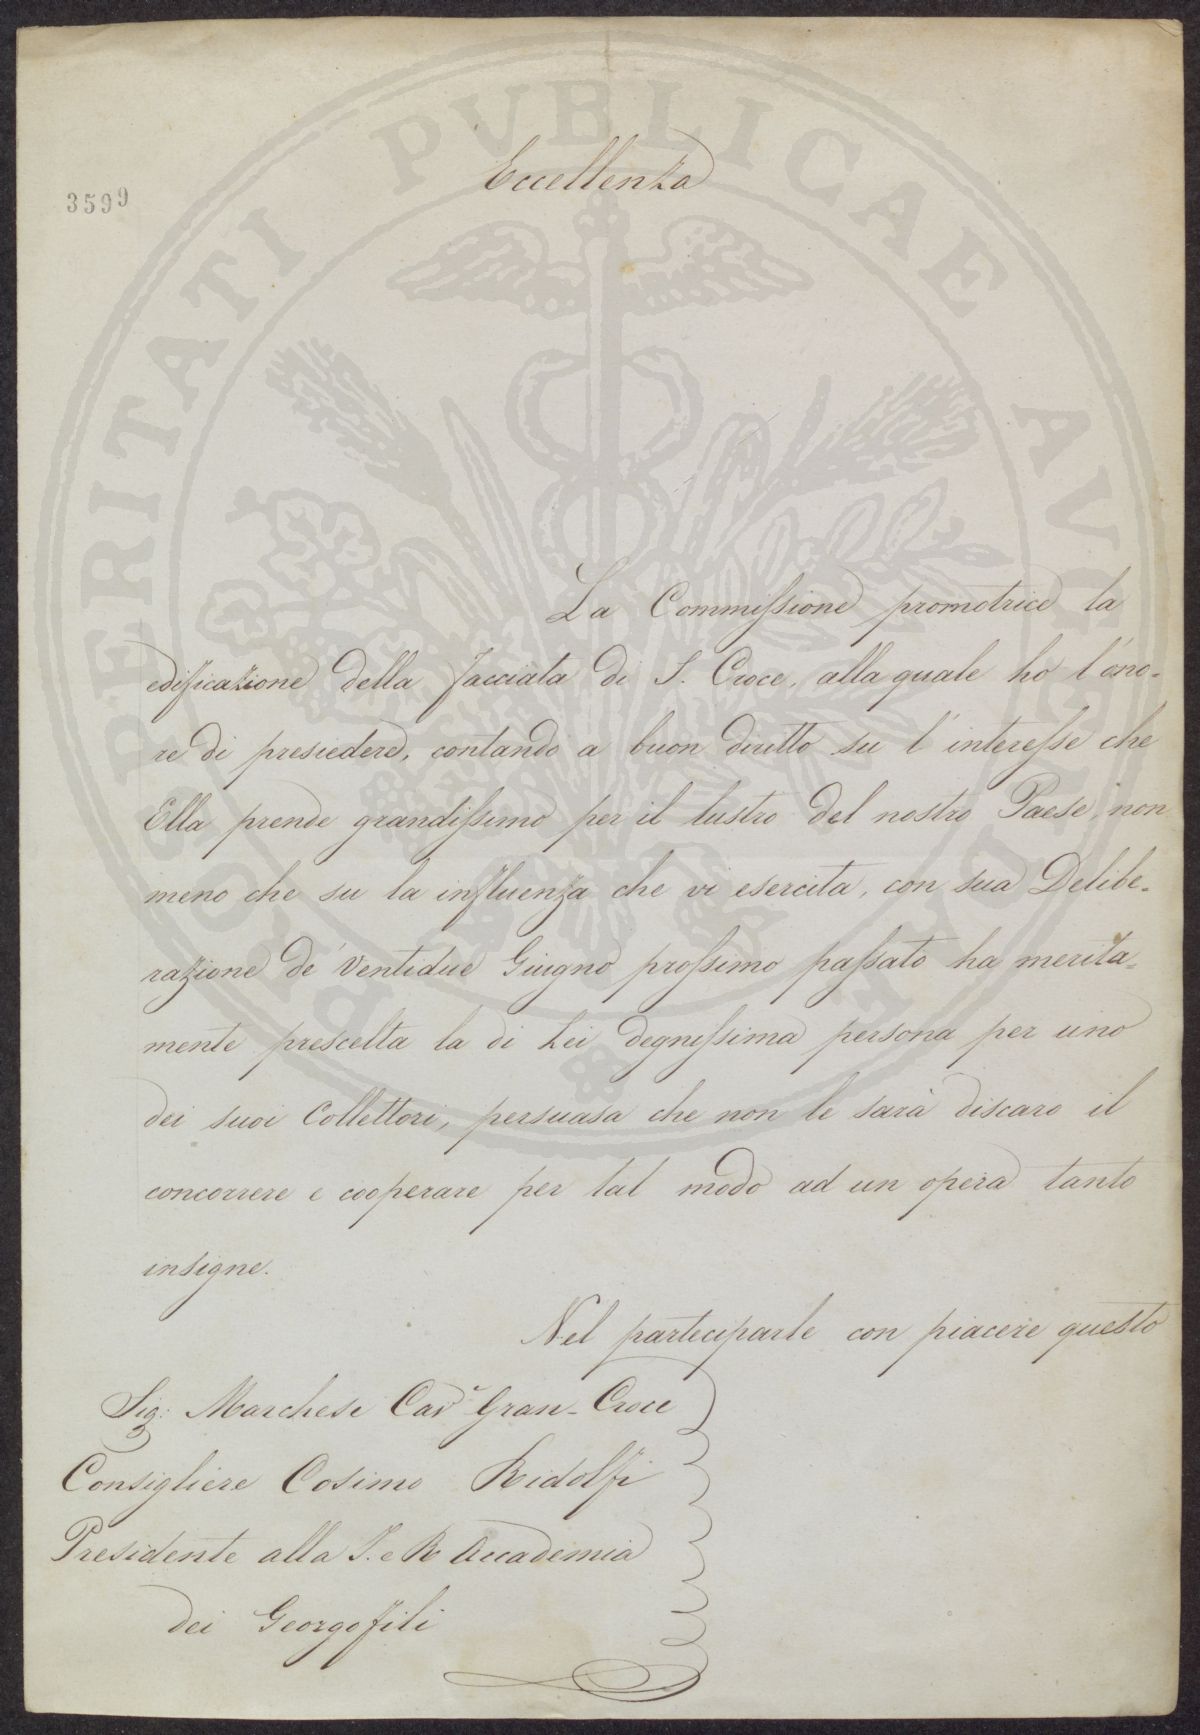 Eccellenza
3599
La Commissione promotrice la
edificazione della facciata di S. Croce, alla quale ho l'ono-
re di presiedere, contando a buon diritto su l'interesse che
Ella prende grandissimo per il lustro del nostro Paese, non
meno che su la influenza che vi esercita, con sua Delibe-
razione de' Ventidue Giugno prossimo passato ha merita-
mente prescelta la di Lei degnissima persona per uno
dei suoi Collettori, persuasa che non le sarà discaro il
concorrere e cooperare per tal modo ad un opera tanto
insigne.
Nel parteciparle con piacere questo
Sig: Marchese Cav.e Gran-Croce
Consigliere Cosimo Ridolfi
Presidente alla I. e R. Accademia
dei Georgofili
PROSPERITATI PVBLICAE AVGENDAE